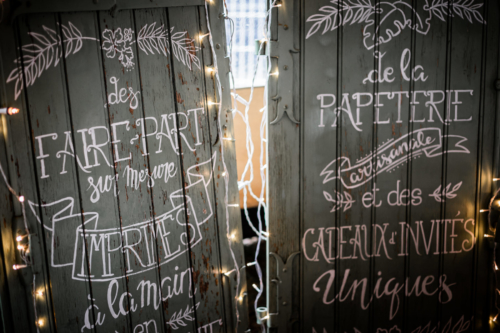 des
FAIRE-PART
sur mesure
IMPRIMÉS
à la main
EN
de la
PAPETERIE
artisanale
et des
CADEAUX D'INVITÉS
Uniques